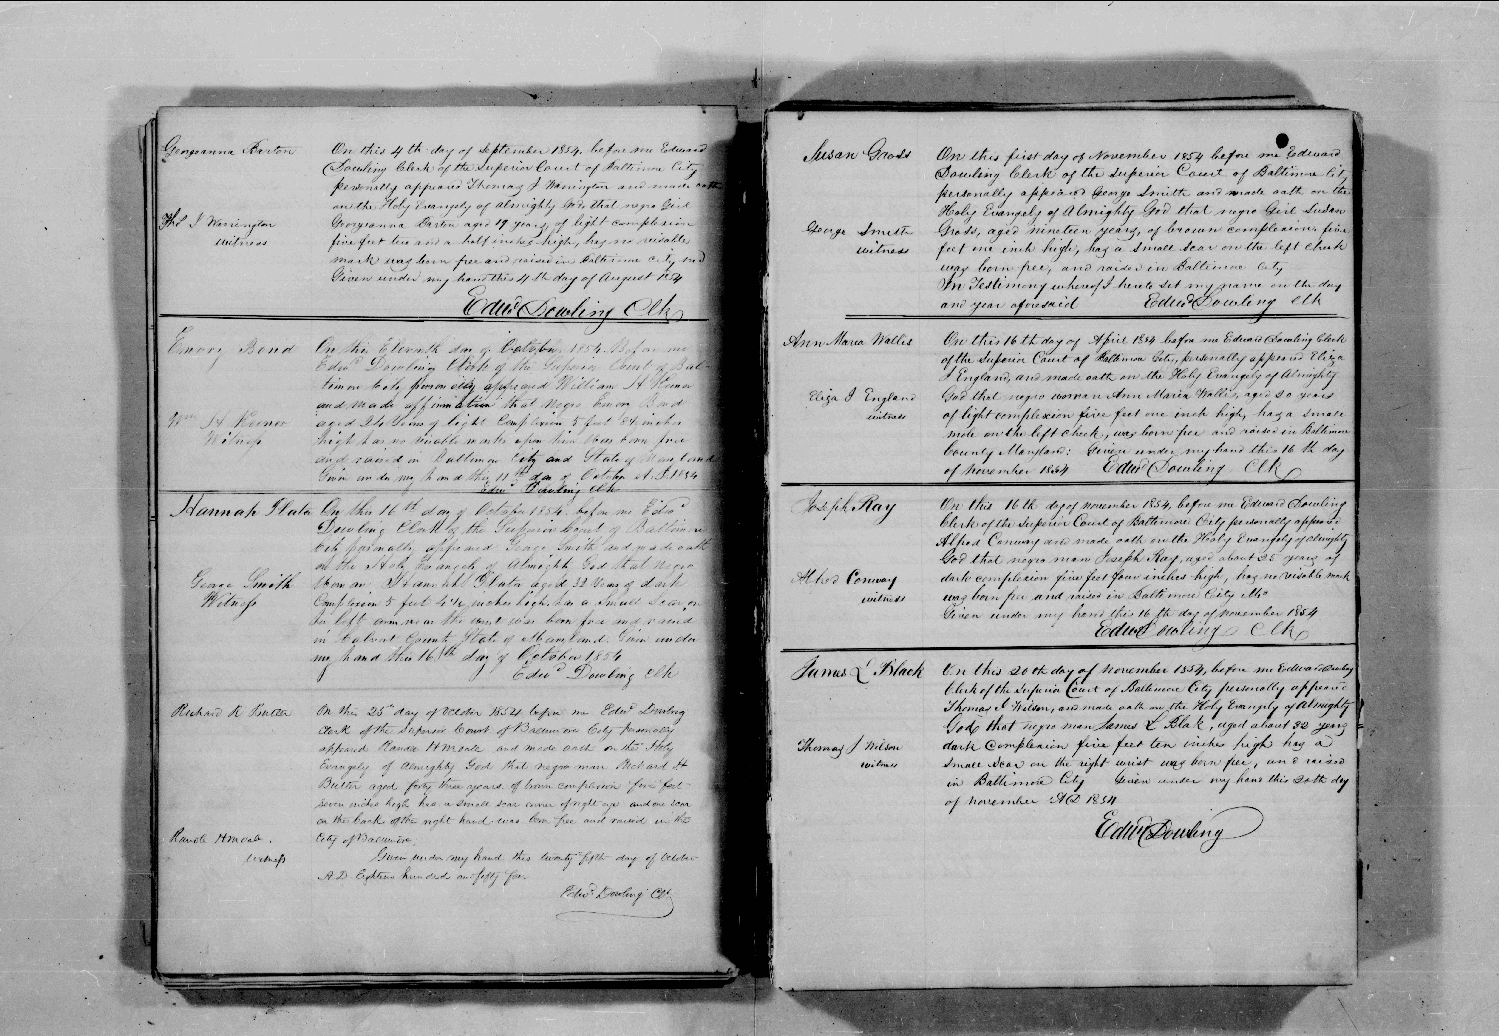 Georgeanna Barton
On this 4th day of September 1854, before me Edward
Dowling Clerk of the Superior Court of Baltimore City
personally appeared Thomas J Warrington and made oath
on the Holy Evangely of Almighty God, that negro Girl
Thos J Warrington
witness
Georgeanna Barton aged 19 years, of light complexion
five feet two and a half inches high, has no visable
mark was born free and raised in Baltimore City Md
Given under my hand this 4th day of August 1854
Edwd Dowling Clk
Emory Bond
On this Eleventh day of October, 1854. Before me
Edwd Dowling Clerk of the Superior Court of Bal-
timore City personally appeared William H
and made affirmation that Negro Emory Bond
Wm H
Witness
aged 24 Years of light Complexion 5 feet inches
high has no visable marks upon him was born free
and raised in Baltimore City and State of Maryland
Given under my hand this 11th day of October A.D. 1854
Edwd Dowling Clk
Hannah Plater
On this 16th day of October 1854, before me Edwd
Dowling Clerk of the Superior Court of Baltimore
City personally appeared George Smith and made oath
on the Holy Evangely of Almighty God that Negro
George Smith
Witness
Woman Hannah Plater aged 32 Years of dark
Complexion 5 feet inches high, has a Small Scar on
left arm near the wrist was born free and raised
in Calvert County State of Maryland. Given under
my hand this 16th day of October 1854
Edwd Dowling Clk
Richard H Butler
On this 25th day of October 1854 before me Edwd Dowling
Clerk of the Superior Court of Baltimore City personally
appeared and made oath on the Holy
Evangely of Almighty God that negro man Richard H
Butler aged forty three years of brown complexion five feet
seven inches high has a small scar corner of right eye and one scar
on the back of the right hand was born free and raised in the
City of Baltimore
Witness
Given under my hand this twenty fifth day of October
A D Eighteen hundred and fifty four
Edwd Dowling Clk
Susan Gross
On this first day of November 1854 before me Edward
Dowling Clerk of the Superior Court of Baltimore City
personally appeared George Smith and made oath on the
Holy Evangely of Almighty God that negro Girl Susan
George Smith
witness
Gross, aged nineteen years, of brown complexion, five
feet one inch high, has a small scar on the left cheek
was born free, and raised in Baltimore City
In Testimony whereof I hereto set my name on the day
and year aforesaid Edwd Dowling Clk
Ann Maria Wallis
On this 16th day of April 1854 before me Edward Dowling Clerk
of the Superior Court of Baltimore City, personally appeared Eliza
J England, and made oath on the Holy Evangely of Almighty
Eliza J England
witness
God that negro woman Ann Maria Wallis, aged 20 years
of light complexion five feet one inch high, has a small
mole on the left cheek, was born free and raised in Baltimore
County Maryland: Given under my hand this 16th day
of November 1854 Edwd Dowling Clk
Joseph Ray
On this 16th day of November 1854, before me Edward Dowling
Clerk of the Superior Court of Baltimore City personally appeared
Alfred Conway and made oath on the Holy Evangely of Almighty
God that negro man Joseph Ray, aged about 25 years of
Alfred Conway
witness
dark complexion five feet four inches high, has no visable mark
was born free and raised in Baltimore City Md
Given under my hand this 16th day of November 1854
Edwd Dowling Clk
James L Black
On this 20th day of November 1854, before me Edward Dowling
Clerk of the Superior Court of Baltimore City personally appeared
Thomas J Wilson, and made oath on the Holy Evangely of Almighty
God, that negro man James L Blak, aged about 32 years
Thomas J Wilson
witness
dark complexion five feet ten inches high has a
small scar on the right wrist was born free, and raised
in Baltimore City Given under my hand this 20th day
of November AD 1854
Edwd Dowling